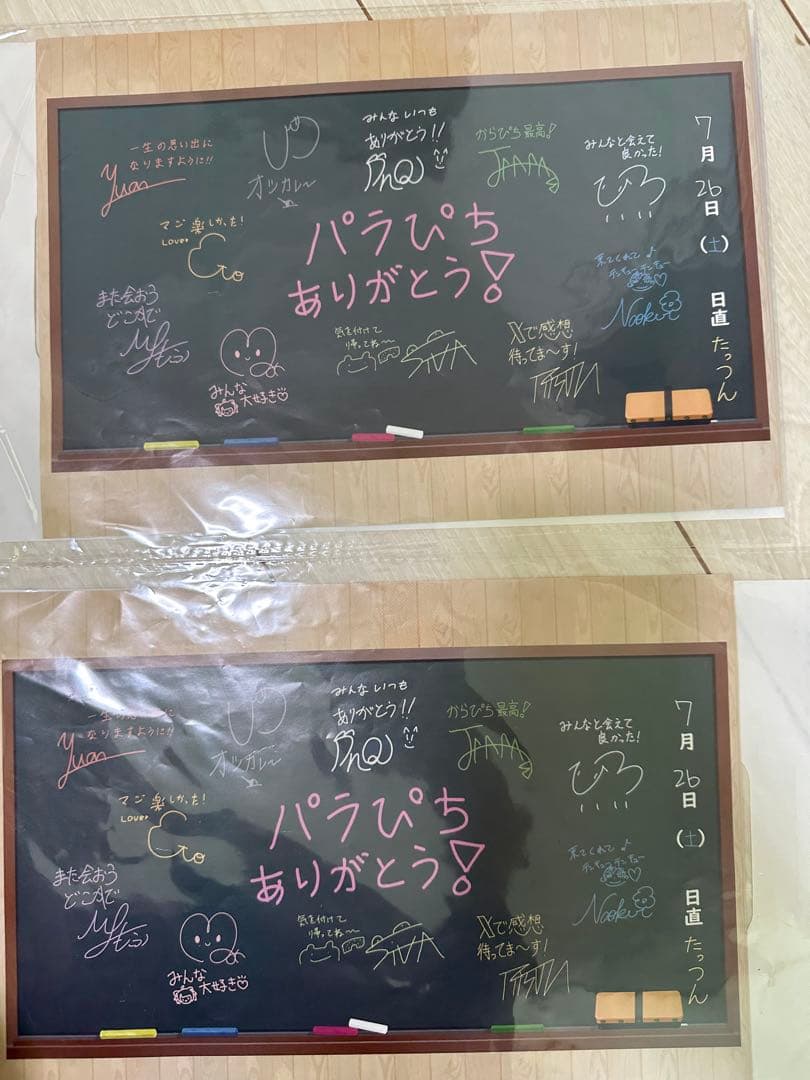 一生の思い出に
なりますように!!
Yuan
じっ
オツカレー
みんないつも
ありがとう!!
からぴち最高!
みんなと会えて
良かった!
ひろ
7月26日(土) 日直 たっつん
マジ楽しかった!
Love.
パラぴち
ありがとう!
来てくれて♪
テンキューテンキュー
Naoki
また会おう
どこかで
みんな
大好き♡
気を付けて
帰ってね〜
SIVA
Xで感想
待ってま〜す!
一生の思い出に
なりますように!!
Yuan
じっ
オツカレー
みんないつも
ありがとう!!
からぴち最高!
みんなと会えて
良かった!
ひろ
7月26日(土) 日直 たっつん
マジ楽しかった!
Love.
パラぴち
ありがとう!
来てくれて♪
テンキューテンキュー
Naoki
また会おう
どこかで
みんな
大好き♡
気を付けて
帰ってね〜
SIVA
Xで感想
待ってま〜す!